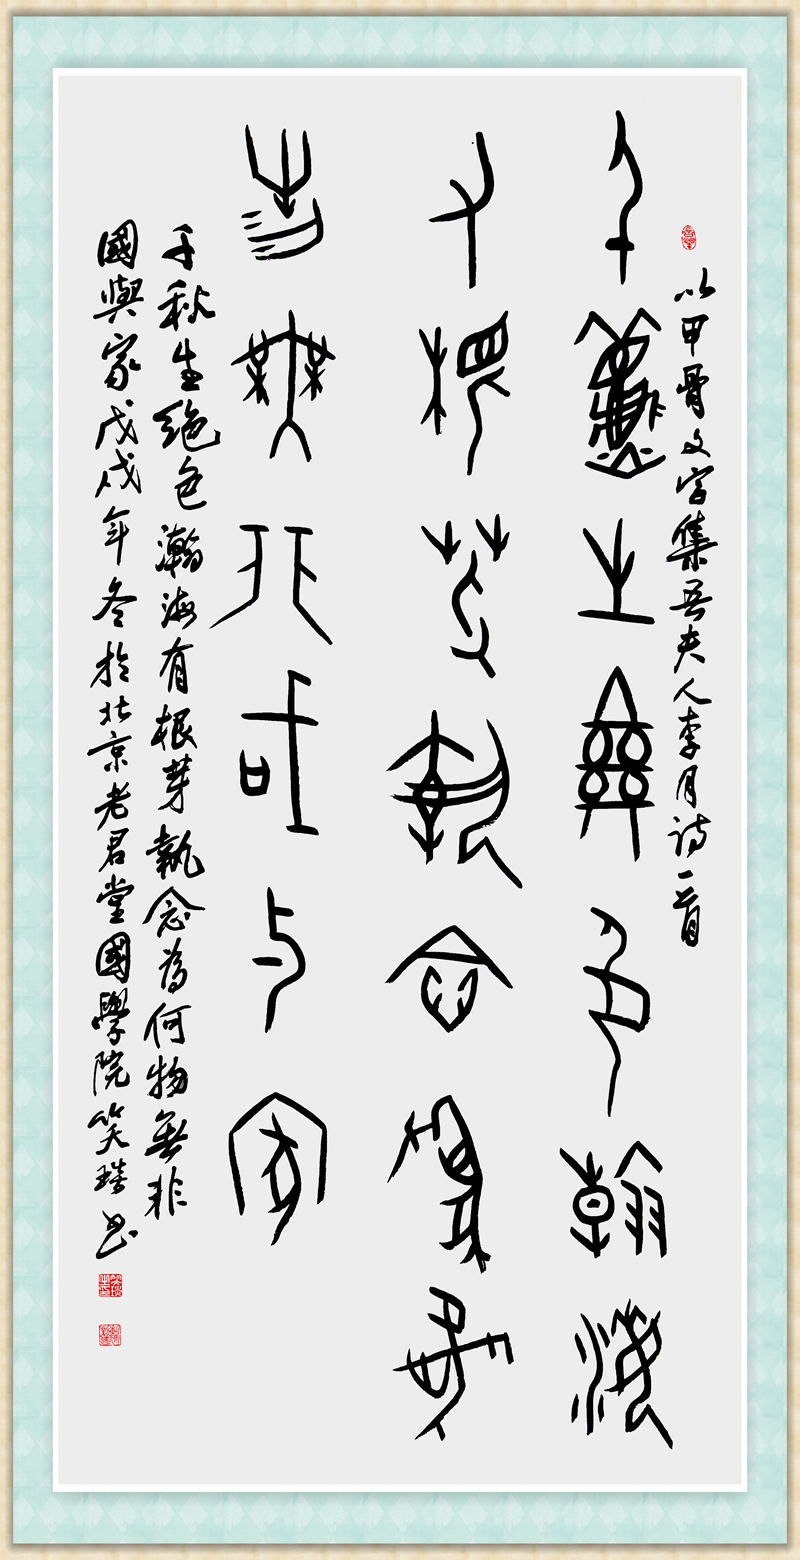 以甲骨文字集吾夫人李月诗一首
千秋生丝色瀚海
有根芽执念为何
物无非国与家
千秋生绝色瀚海有根芽執念為何物無非
國與家戊戌年冬於北京老君堂國學院笑琂书